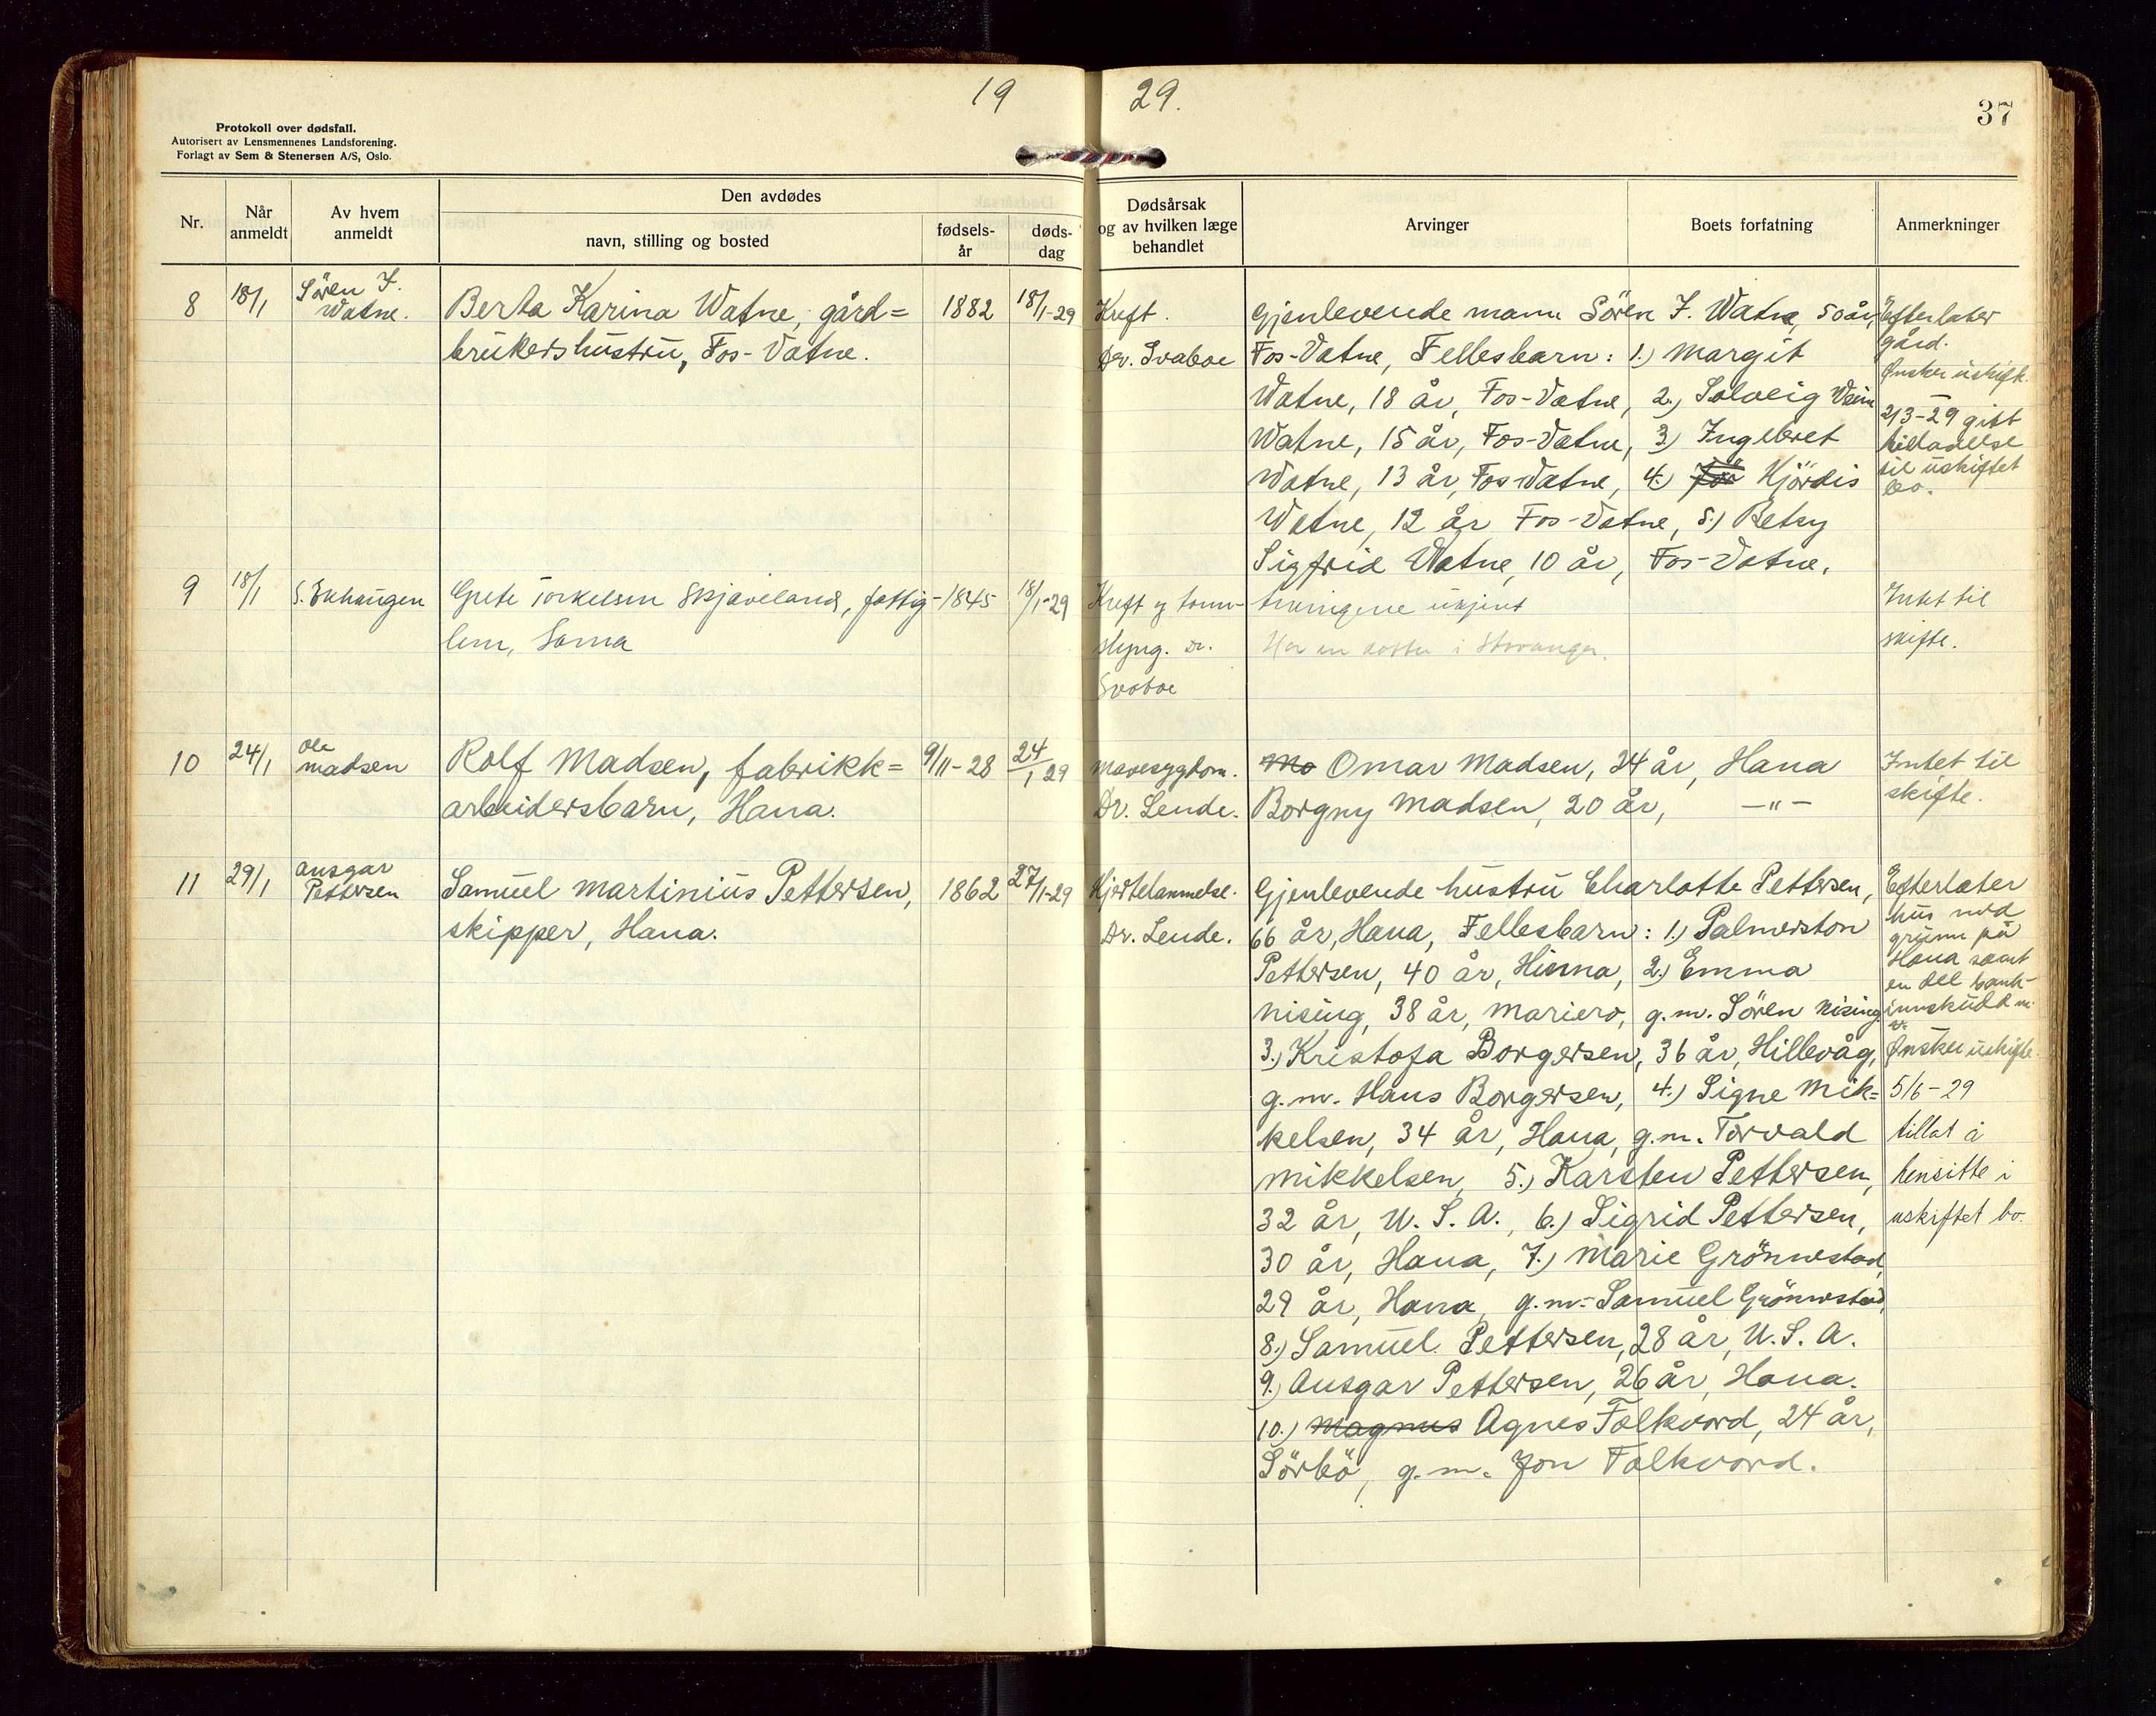 19 29.
37
Protokoll over dødsfall.
Autorisert av Lensmennenes Landsforening.
Forlagt av Sem & Stenersen A/S, Oslo.
Nr.
Når anmeldt
Av hvem anmeldt
Den avdødes
navn, stilling og bosted
fødsels-år
døds-dag
Dødsårsak og av hvilken læge behandlet
Arvinger
Boets forfatning
Anmerkninger
8
18/1
Sören F.
Watne.
Berta Karina Watne, gård=
brukershustru, Fos-Vatne.
1882
18/1-29
Kreft.
Dr. Svaboe
Gjenlevende mann Sören F. Watne, 50 år,
Fos-Vatne, Fellesbarn: 1.) Margit
Watne, 18 år, Fos-Vatne, 2.) Solveig
Watne, 15 år, Fos-Vatne, 3) Ingebret
Watne, 13 år, Fos-Vatne, 4.) Hjördis
Watne, 12 år Fos-Vatne, 5.) Betsy
Sigfrid Watne, 10 år, Fos-Vatne.
Efterlater
gård.
Ønsker uskift.
2/3-29 gitt
tilladelse
til uskiftet
bo.
9
18/1
S. Ekhaugen
Grete Torkelsen Skjæveland, fattig-
lem, Soma
1845
18/1-29
Kreft og
Dr.
Svaboe
ukjent
Har en søster i Stavanger.
Intet til
skifte.
10
24/1
Ole
Madsen
Rolf Madsen, fabrikk=
arbeidersbarn, Hana.
9/11-28
24/1 29
Mavesygdom.
Dr. Lende.
Mo Omar Madsen, 34 år, Hana
Borgny Madsen, 20 år, -"-
Intet til
skifte.
11
29/1
Ansgar
Pettersen
Samuel Martinius Pettersen,
skipper, Hana.
1862
27/1-29
Hjertelammelse.
Dr. Lende.
Gjenlevende hustru Charlotte Pettersen,
66 år, Hana, Fellesbarn: 1.) Palmerston
Pettersen, 40 år, Hinna, 2.) Emma
Nising, 38 år, Mariero, g.m. Sören Nising
3.) Kristofa Borgersen, 36 år, Hillevåg,
g.m. Hans Borgersen, 4.) Signe Mik=
kelsen, 34 år, Hana, g.m. Torvald
Mikkelsen, 5.) Karsten Pettersen,
32 år, U.S.A., 6.) Sigrid Pettersen,
30 år, Hana, 7.) Marie Grönnestad,
29 år, Hana, g.m. Samuel Grönnestad,
8.) Samuel Pettersen, 28 år, U.S.A.
9.) Ansgar Pettersen, 26 år, Hana.
10.) Magnus Agnes Folkvord, 24 år,
Sörbö, g.m. Jon Folkvord.
Efterlater
hus med
grunn på
Hana samt
en del bank-
innskudd m.
v.
Ønsker uskifte.
5/6-29
tillat å
hensitte i
uskiftet bo.